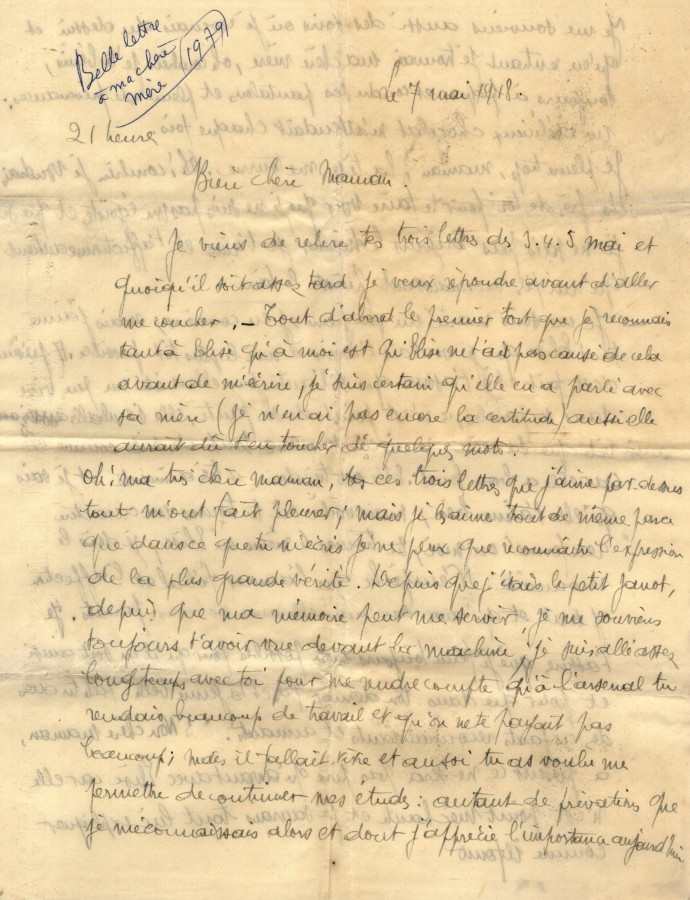 Belle lettre
à ma chère
mère
1979
Le 7 mai 1918.
21 heure
Bien chère Maman.
Je viens de relire tes trois lettres des 3.4.5 mai et
quoiqu'il soit assez tard je veux répondre avant d'aller
me coucher. — Tout d'abord le premier tort que je reconnais
tant à Elise qu'à moi est qu'Elise ne t'ait pas causé de cela
avant de m'écrire, je suis certain qu'elle en a parlé avec
sa mère (je n'en ai pas encore la certitude) aussi elle
aurait dû t'en toucher dé quelques mots.
Oh! ma très chère maman, ces trois lettres que j'aime par-dessus
tout m'ont fait pleurer; mais je les aime tout de même parce
que dans ce que tu m'écris je ne peux que reconnaître l'expression
de la plus grande vérité. Depuis que j'étais le petit Janot,
depuis que ma mémoire peut me servir, je me souviens
toujours t'avoir vue devant la machine, je suis allé assez
longtemps avec toi pour me rendre compte qu'à l'arsenal tu
rendais beaucoup de travail et qu'on ne te payait pas
beaucoup; mais il fallait vivre et aussi tu as voulu me
permettre de continuer mes études: autant de privations que
je méconnaissais alors et dont j'apprécie l'importance aujourd'hui